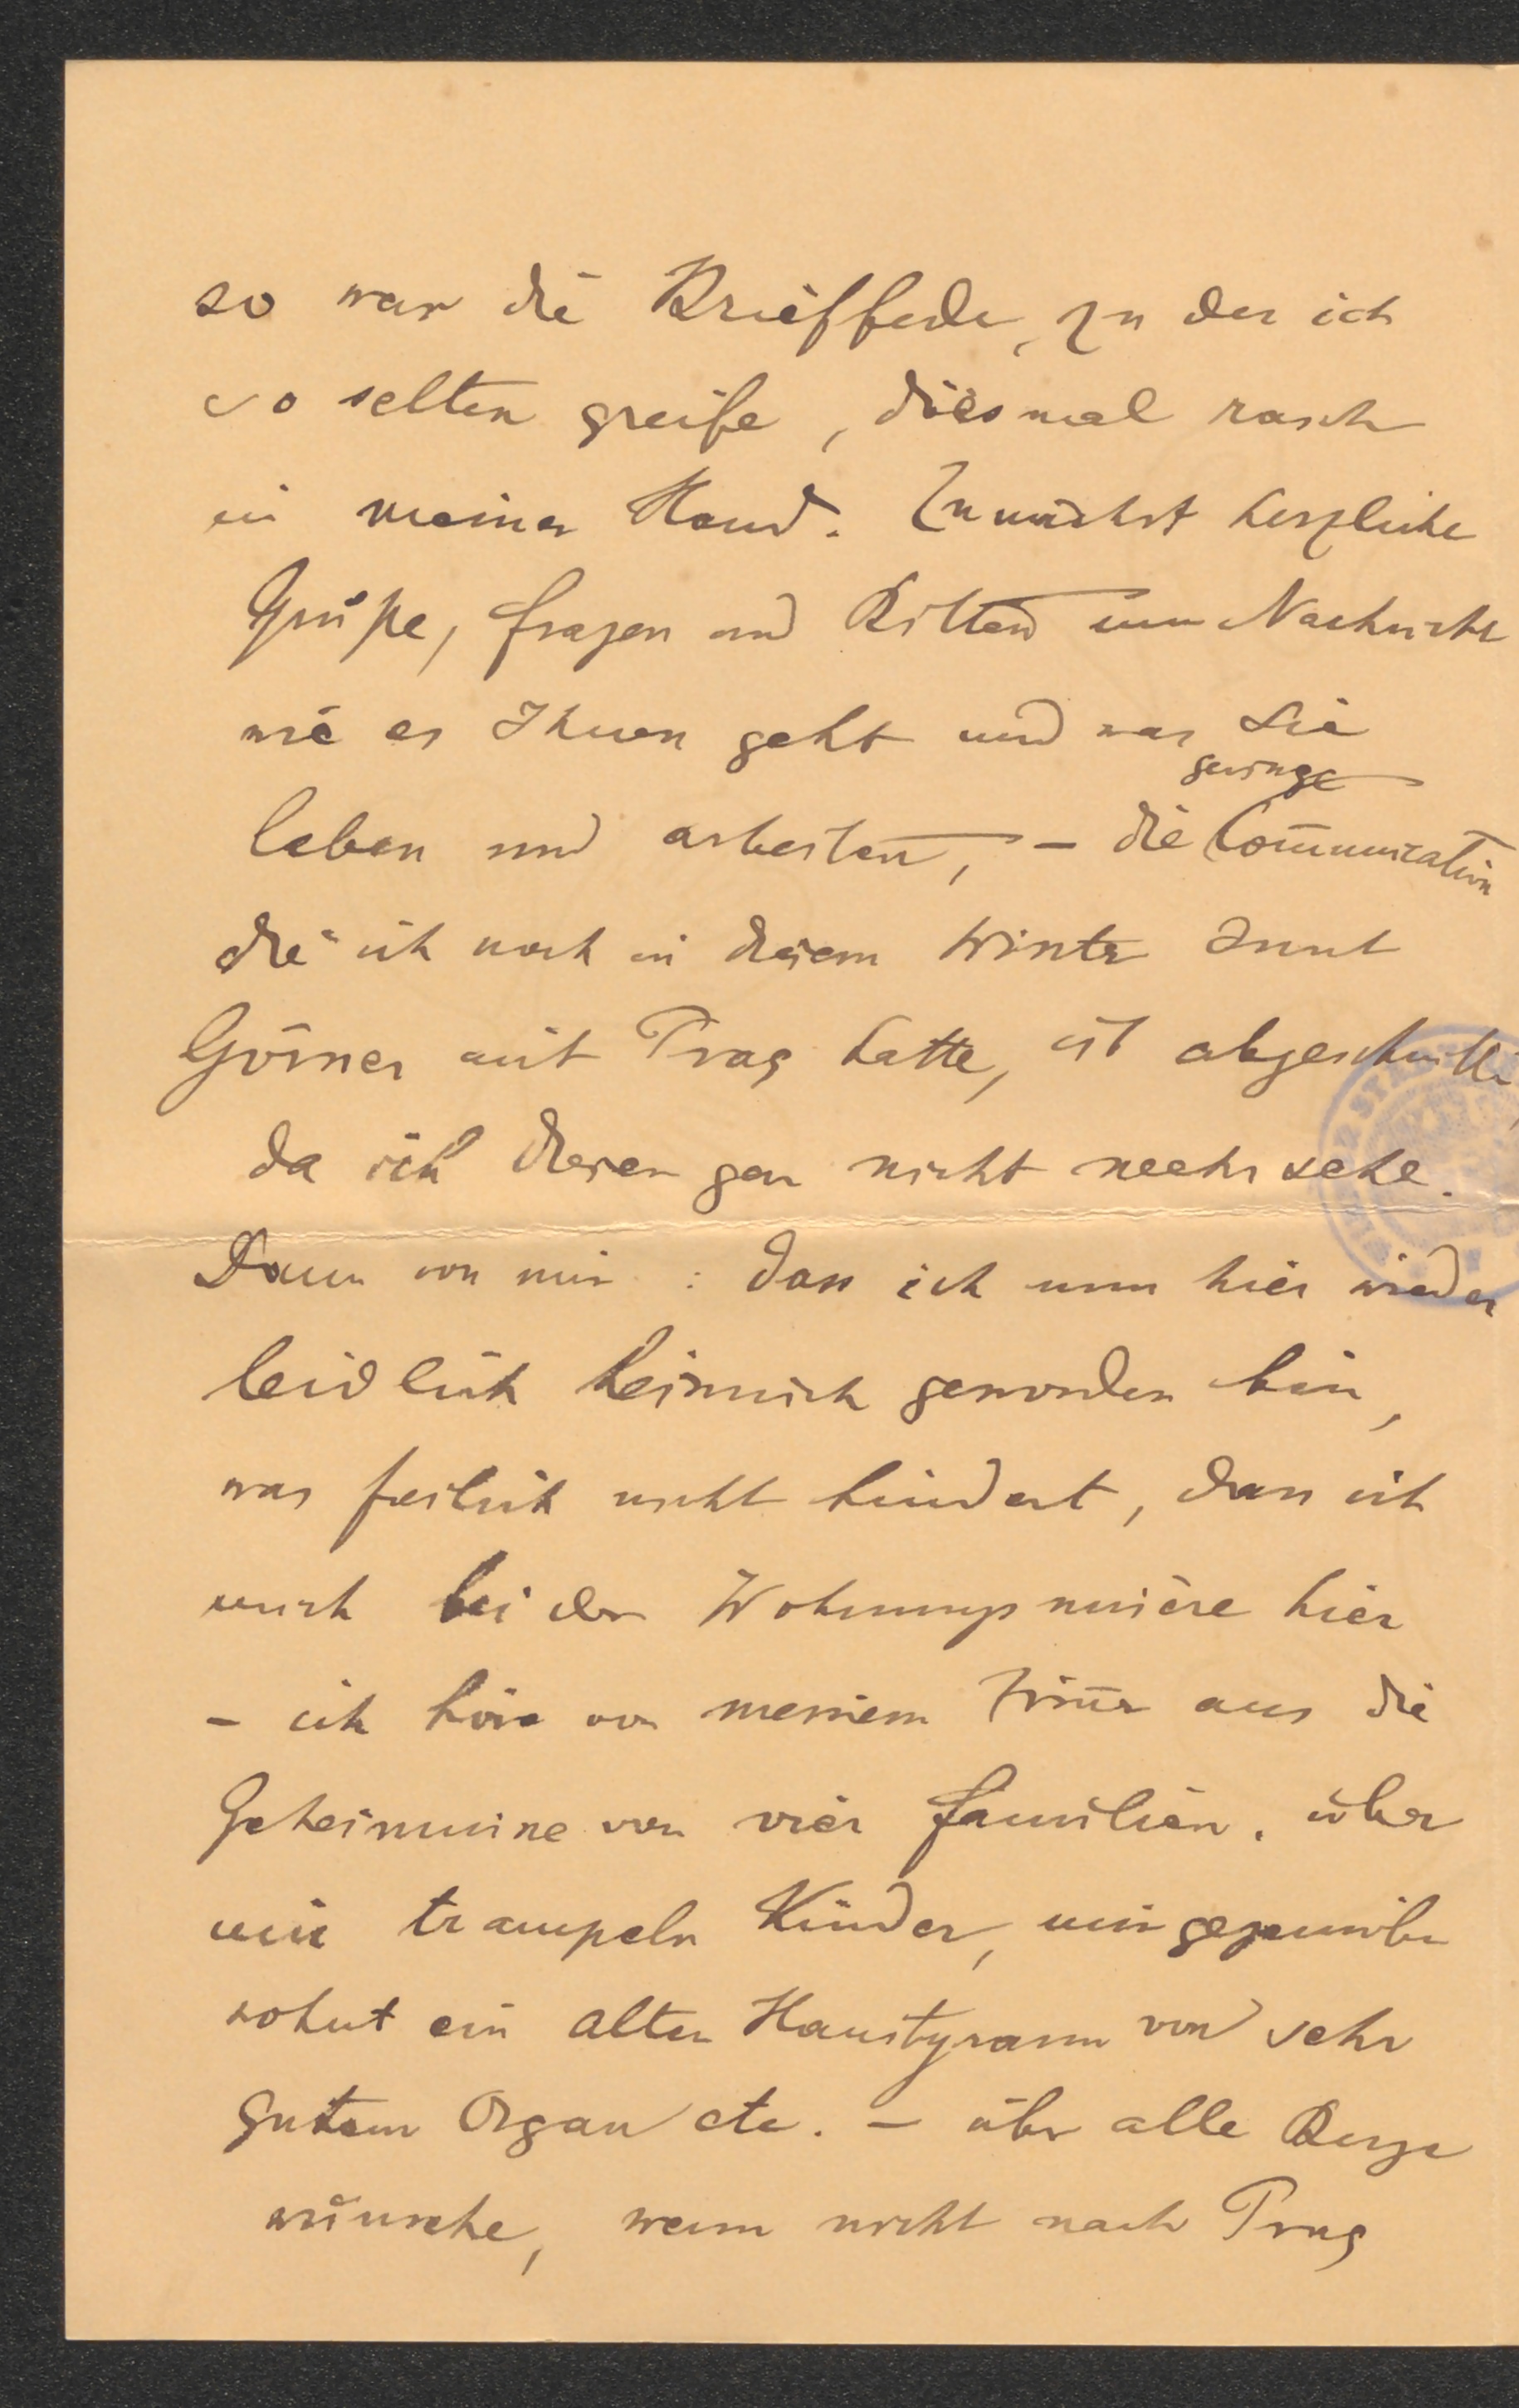 so war die Brieffeder, zu der ich
so selten greife, diesmal rasch
in meiner Hand. Zunächst herzliche
Grüße, Fragen und Bitten um Nachricht
wie es Ihnen geht und was Sie
geringe
leben und arbeiten, – die Com̄unication
die ich noch in diesem Winter
Görner mit Prag hatte, ist abgeschnitten,
da ich diesen gar nicht mehr sehe.
Dann von mir: dass ich nun hier wieder
leidlich heimisch geworden bin,
was freilich nicht hindert, dass ich
mich bei der Wohnungsmisère hier
– ich höre von meinem Zim̄er aus die
Geheimnisse von vier Familien, über
mir trampeln Kinder, mir gegenüber
wohnt ein alter Haustyrann von sehr
gutem Organ etc. – über alle Berge
wünsche, wenn nicht nach Prag